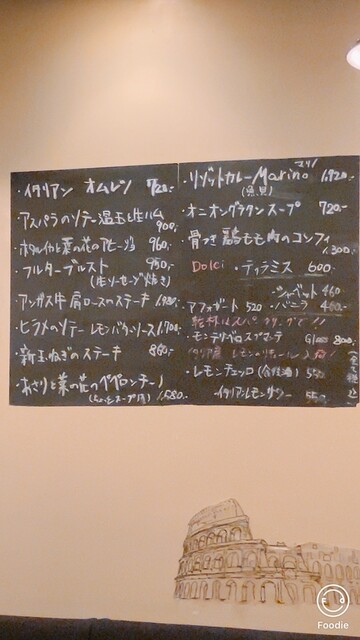 ・イタリアン オムレツ 720.-
・アスパラのソテー 温玉と生ハム 900.-
・ホタルイカと菜の花のアヒージョ 960.-
・フルターブルスト 950.-
(生ソーセージ焼き)
・アンガス牛 肩ロースのステーキ 1,980.-
・ヒラメのソテー レモンバターソース 1,700.-
・新玉ねぎのステーキ 860.-
・あさりと菜の花のペペロンチーノ
(ちょっとスープ風) 1,580.-
・リゾットカレー Marino マリノ 1,920.-
(魚貝)
・オニオングラタンスープ 720.-
・骨つき鶏もも肉のコンフィ
1,300.-
Dolci ・ティラミス 600.-
・シャーベット 460
アフォガート 520 ・バニラ 460.-
乾杯はスパークリングで!!
・モンテベッロスプマーテ Glass 800.-
イタリア産 レモンのリキュール入荷!
・レモンチェッロ (食後酒) 550
イタリアンレモンサワー 550.-
(全て税込)
Foodie